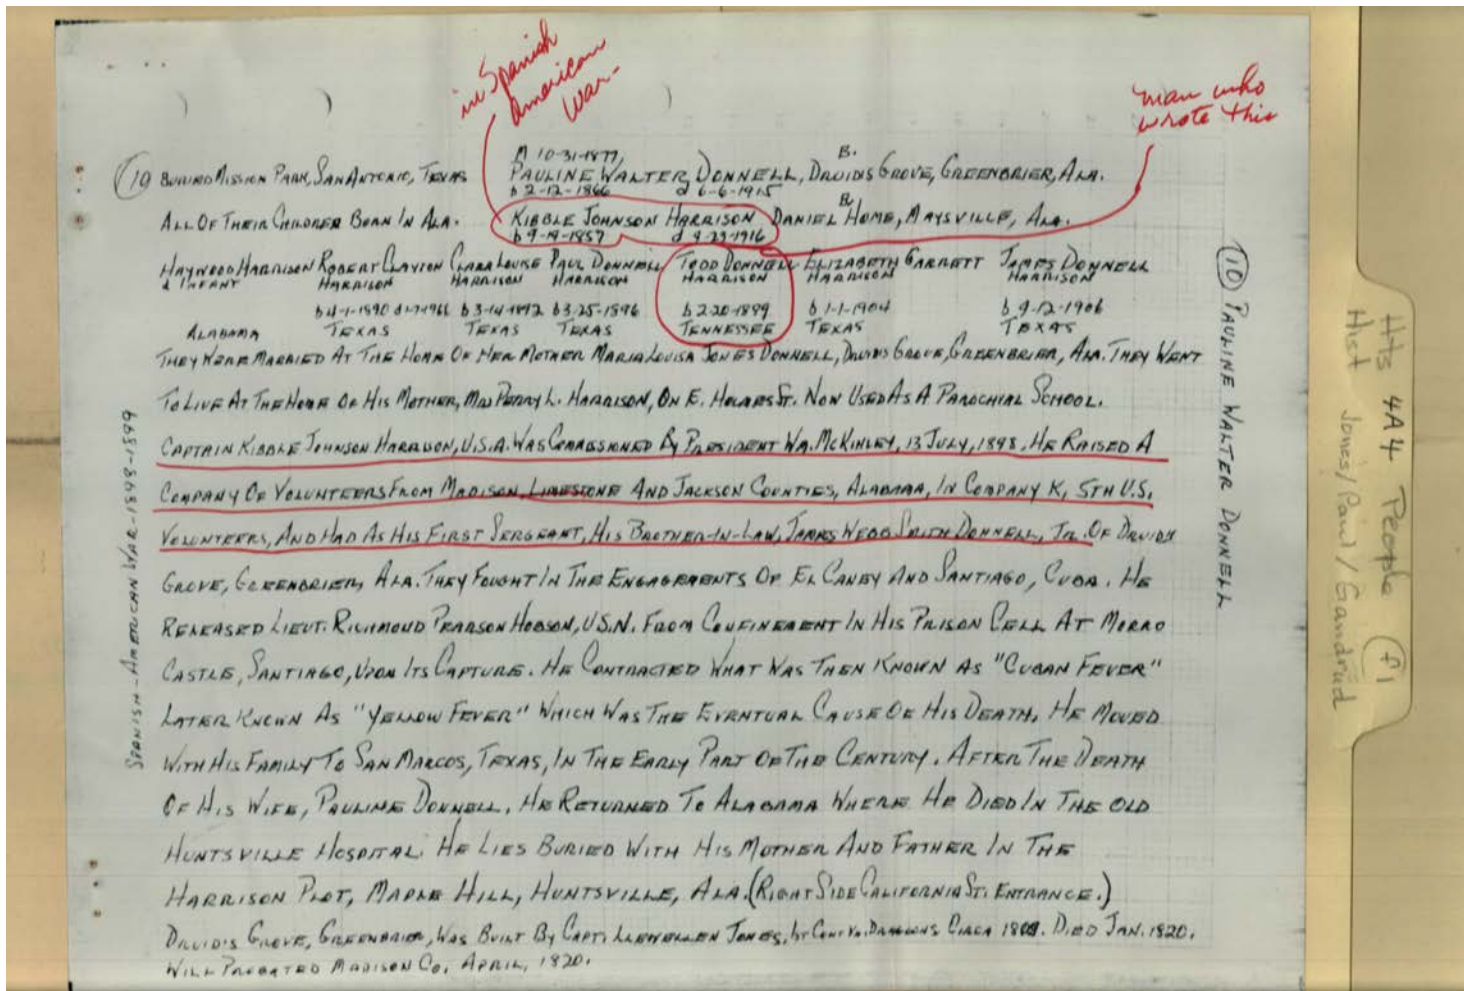 in Spanish
American
War-
man who
wrote this
M 10-31-1877,
B.
(10 BURIED MISSION PARK, SAN ANTONIO, TEXAS PAULINE WALTER DONNELL, DRUIDS GROVE, GREENBRIER, ALA.
b 2-12-1866 d 6-6-1915
ALL OF THEIR CHILDREN BORN IN ALA. KIBBLE JOHNSON HARRISON DANIEL HOME, MAYSVILLE, ALA.
b 9-19-1857 d 9-23-1916
HAYWOOD HARRISON ROBERT CLAYTON CLARA LOUISE PAUL DONNELL TODD DONNELL ELIZABETH GARRETT JAMES DONNELL
& INFANT HARRISON HARRISON HARRISON HARRISON HARRISON HARRISON
b 4-1-1890 d 1-7-1966 b 3-14-1892 b 3-25-1896 b 2-20-1899 b 1-1-1904 b 9-12-1906
ALABAMA TEXAS TEXAS TEXAS TENNESSEE TEXAS TEXAS
THEY WERE MARRIED AT THE HOME OF HER MOTHER MARIA LOUISA JONES DONNELL, DRUIDS GROVE, GREENBRIER, ALA. THEY WENT
TO LIVE AT THE HOME OF HIS MOTHER, MRS PERRY L. HARRISON, ON E. HOLMES ST. NOW USED AS A PAROCHIAL SCHOOL.
CAPTAIN KIBBLE JOHNSON HARRISON, U.S.A. WAS COMMISSIONED BY PRESIDENT WM. MCKINLEY, 13 JULY, 1898. HE RAISED A
COMPANY OF VOLUNTEERS FROM MADISON, LIMESTONE AND JACKSON COUNTIES, ALABAMA, IN COMPANY K, 5TH U.S.
VOLUNTEERS, AND HAD AS HIS FIRST SERGEANT, HIS BROTHER-IN-LAW, JAMES WEBB SMITH DONNELL, JR. OF DRUIDS
GROVE, GREENBRIER, ALA. THEY FOUGHT IN THE ENGAGEMENTS OF EL CANEY AND SANTIAGO, CUBA. HE
RELEASED LIEUT. RICHMOND PEARSON HOBSON, U.S.N. FROM CONFINEMENT IN HIS PRISON CELL AT MORRO
CASTLE, SANTIAGO, UPON ITS CAPTURE. HE CONTRACTED WHAT WAS THEN KNOWN AS "CUBAN FEVER"
LATER KNOWN AS "YELLOW FEVER" WHICH WAS THE EVENTUAL CAUSE OF HIS DEATH. HE MOVED
WITH HIS FAMILY TO SAN MARCOS, TEXAS, IN THE EARLY PART OF THE CENTURY. AFTER THE DEATH
OF HIS WIFE, PAULINE DONNELL, HE RETURNED TO ALABAMA WHERE HE DIED IN THE OLD
HUNTSVILLE HOSPITAL. HE LIES BURIED WITH HIS MOTHER AND FATHER IN THE
HARRISON PLOT, MAPLE HILL, HUNTSVILLE, ALA. (RIGHT SIDE CALIFORNIA ST. ENTRANCE.)
DRUID'S GROVE, GREENBRIER, WAS BUILT BY CAPT. LLEWELLEN JONES, DRAGOONS CIRCA 1808. DIED JAN. 1820.
WILL PROBATED MADISON CO. APRIL, 1820.
SPANISH-AMERICAN WAR-1898-1899
(10) PAULINE WALTER DONNELL
Hts 4A4 People f1
Hist Jones/Paul/Gandrud